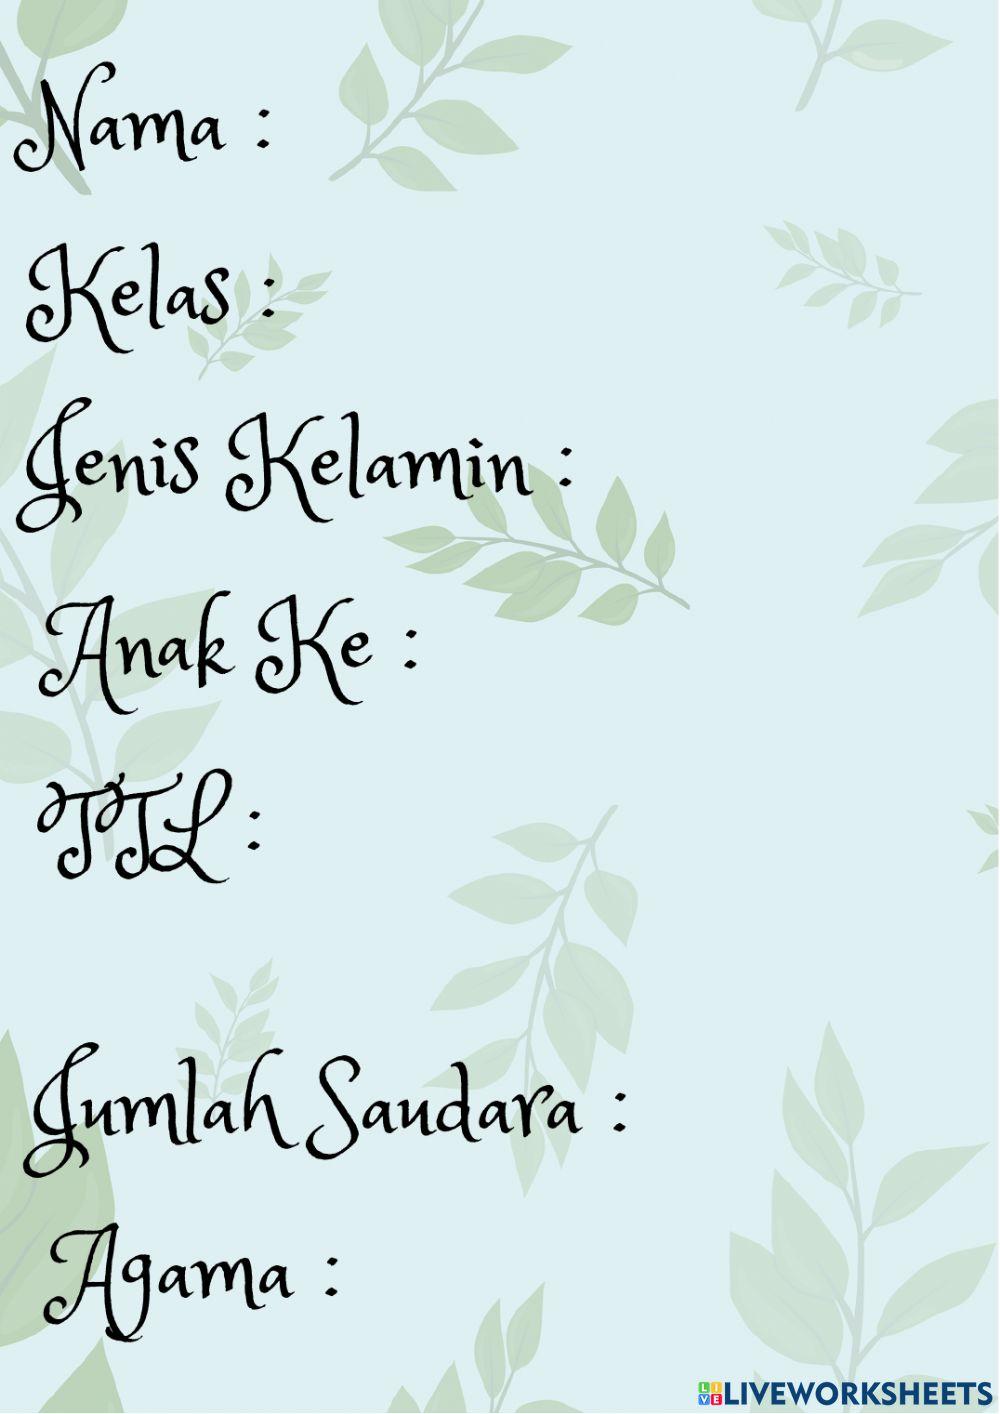 Nama :
Kelas :
Jenis Kelamin :
Anak Ke :
TTL :
Jumlah Saudara :
Agama :
LIVE LIVEWORKSHEETS